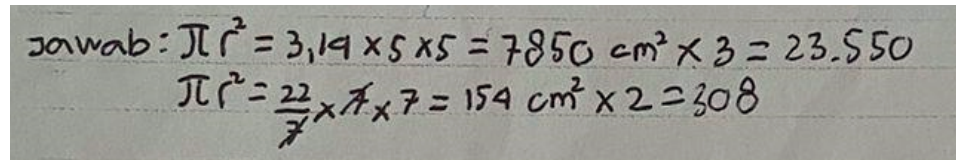 Jawab: πr² = 3,14 × 5 × 5 = 7850 cm² × 3 = 23.550
πr² = 22/7 × 7 × 7 = 154 cm² × 2 = 308